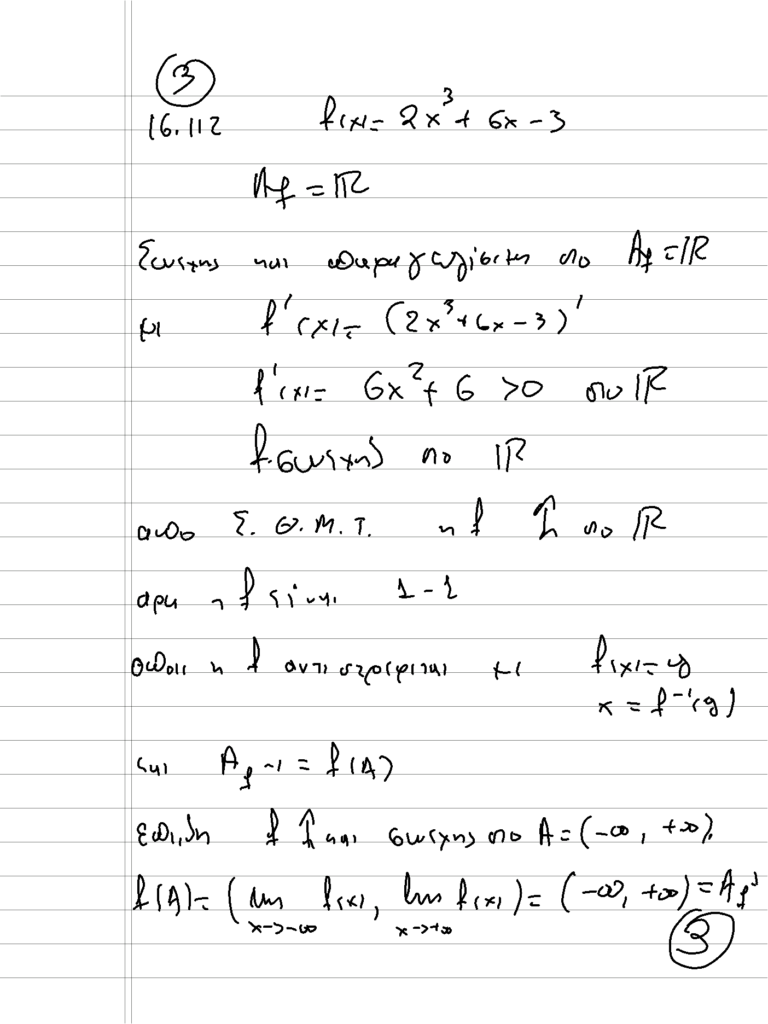 3
16.112 f(x)= 2x³+ 6x-3
A_f = ℝ
Συνεχης και παραγωγίσιμη στο A_f=ℝ
με f'(x)= (2x³+6x-3)'
f'(x)= 6x²+ 6 >0 στο ℝ
f συνεχης στο ℝ
απο Σ. Θ. Μ. Τ. η f ↑ στο ℝ
αρα η f είναι 1-1
οποτε η f αντιστρεφεται με f(x)=y
x = f⁻¹(y)
και A_f⁻¹ = f(A)
Επειδη f ↑ και συνεχης στο A=(-∞, +∞),
f(A)= (lim f(x), lim f(x))= (-∞, +∞)=A_f⁻¹
x->-∞ x->+∞
3